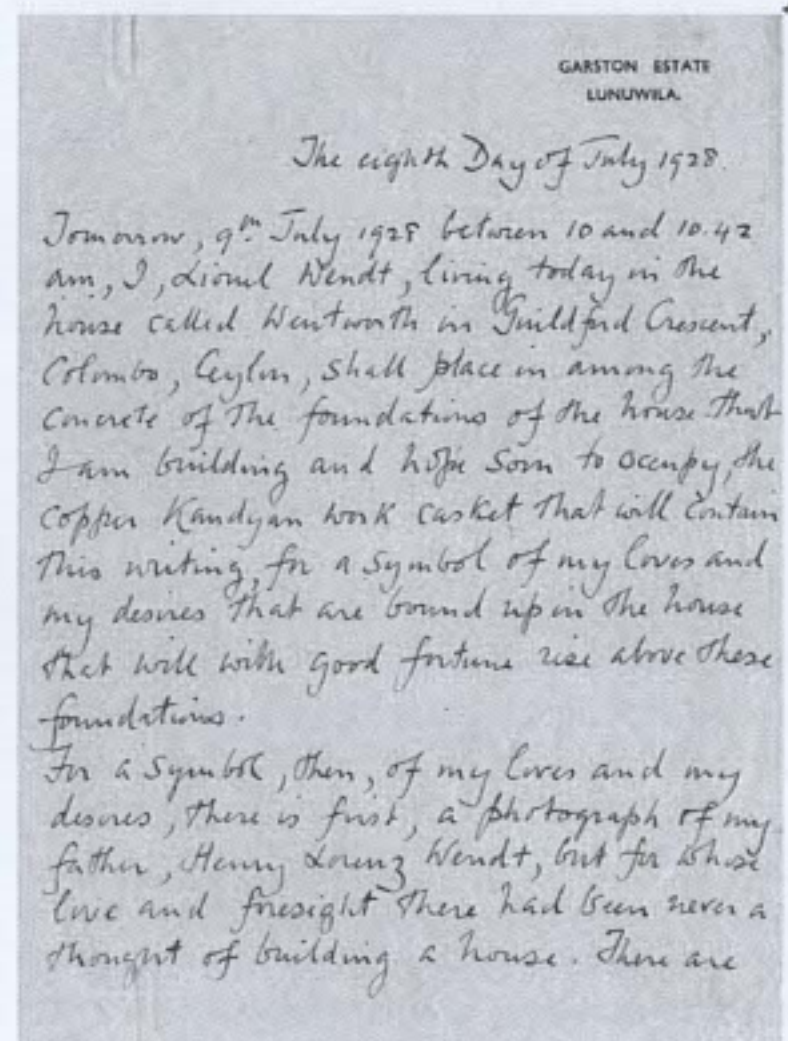 GARSTON ESTATE
LUNUWILA.
The eighth Day of July 1928.
Tomorrow, 9th July 1928 between 10 and 10.42
am, I, Lionel Wendt, living today in the
house called Wentworth in Guildford Crescent,
Colombo, Ceylon, shall place in among the
concrete of the foundations of the house that
I am building and hope soon to occupy, the
copper Kandyan work casket that will contain
this writing, for a symbol of my loves and
my desires that are bound up in the house
that will with good fortune rise above these
foundations.
For a symbol, then, of my loves and my
desires, there is first, a photograph of my
father, Henry Lorenz Wendt, but for whose
love and foresight there had been never a
thought of building a house. There are